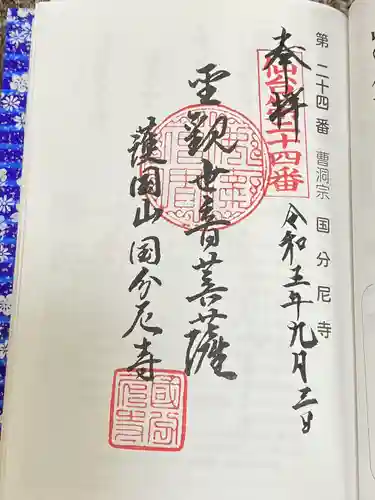 第二十四番 曹洞宗 国分尼寺
奉拝
令和五年九月三日
聖観世音菩薩
護国山国分尼寺
十四番